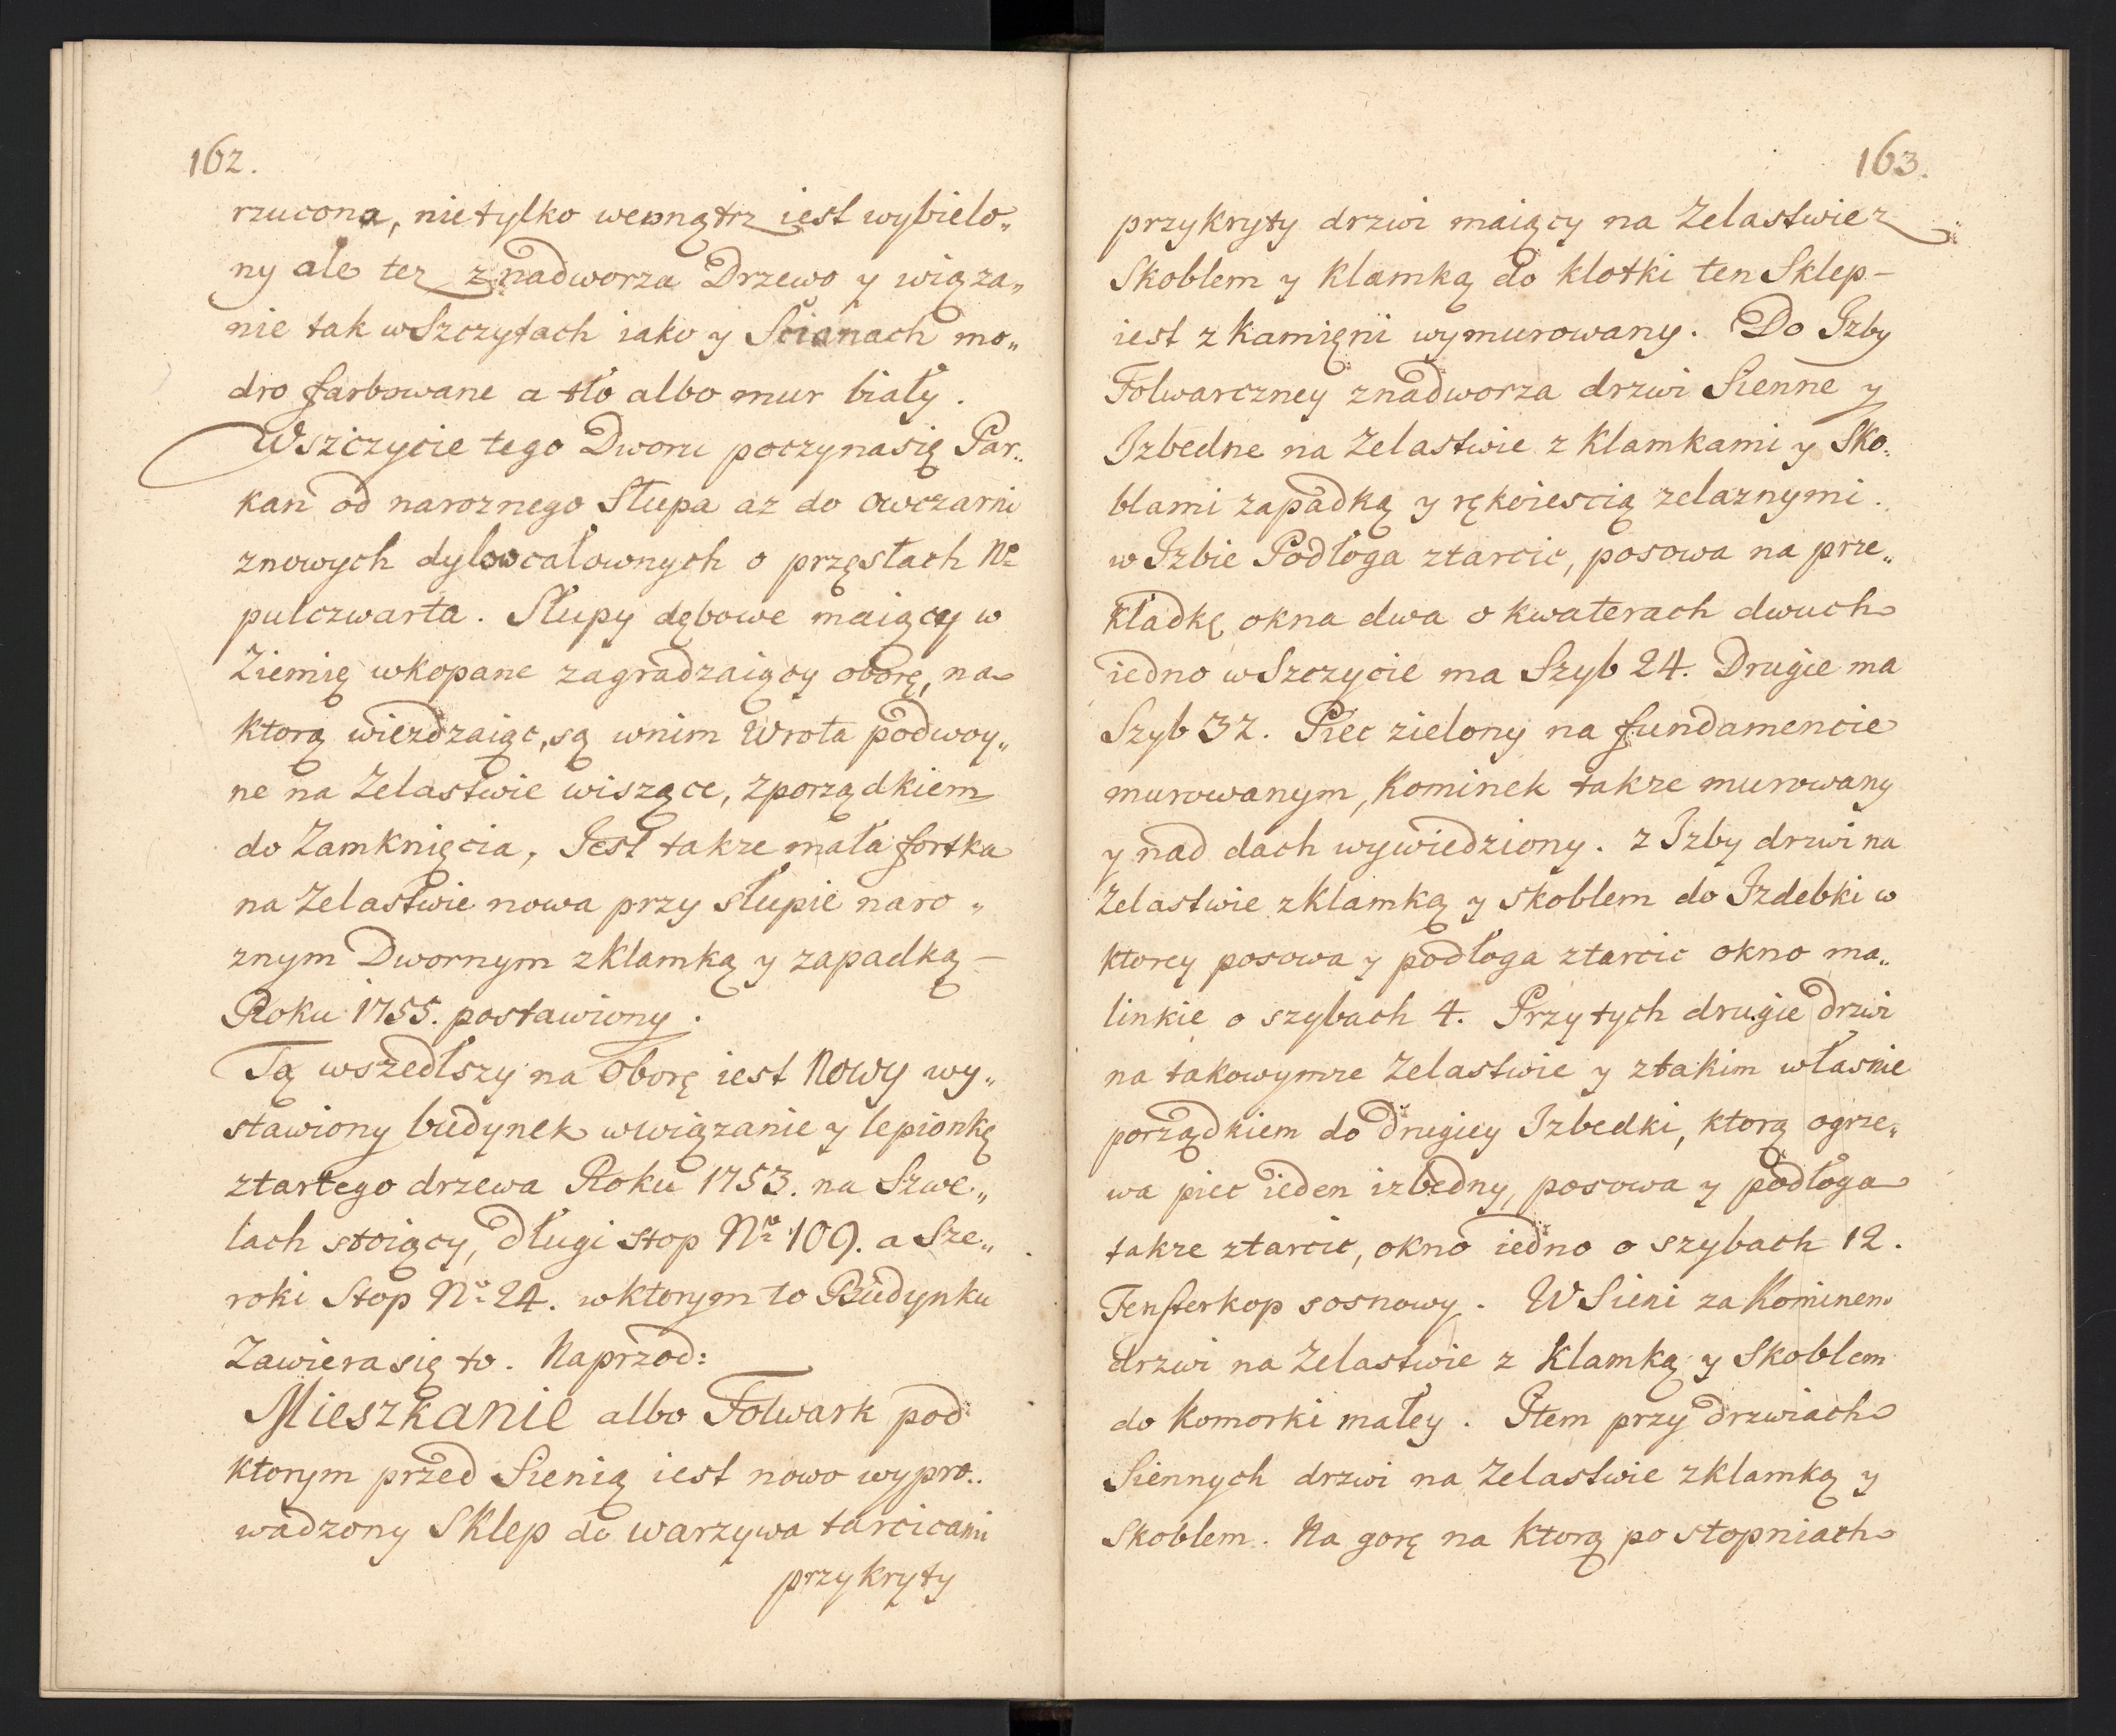 162.
rzucona, nietylko wewnątrz iest wybielo„
ny ale tez znadworza Drzewo y wiąza„
nie tak wSzczytach iako y Scianach mo„
dro farbowane a tło albo mur biały.
Wszczycie tego Dworu poczynasię Par„
kan od naroznego Słupa az do owczarni
znowych dylow całownych o przęsłach No
pulczwarta. Słupy dębowe maiący w
Ziemię wkopane zagradzaiący oborę, na
ktorą wiezdzaiąc, są wnim Wrota podwoy„
ne na Zelastwie wiszące, Zporządkiem
do Zamknięcia, Jest takze mała fortka
na Zelastwie nowa przy słupie naro„
znym Dwornym zKlamką y zapadką –
Roku 1755. postawiony.
Tą wszedłszy na Oborę iest Nowy wy„
stawiony budynek wwiązanie y lepionkę
ztartego drzewa Roku 1753. na Szwe„
lach stoiący, długi stop No 109. a Sze„
roki Stop No 24. wktorym to Budynku
Zawierasię to. Naprzod:
Mieszkanie albo Folwark pod
ktorym przed Sienią iest nowo wypro„
wadzony Sklep do warzywa tarcicami
przykryty
163.
przykryty drzwi maiący na Zelastwie z
Skoblem y Klamką do klotki ten Sklep –
iest z kamięni wymurowany. Do Izby
Folwarczney znadworza drzwi Sienne y
Izbedne na Zelastwie z Klamkami y Sko„
blami zapadką y rękoiescią zelaznymi.
w Izbie Podłoga ztarcic, posowa na prze„
kładkę okna dwa o kwaterach dwuch
iedno wSzczycie ma Szyb 24. Drugie ma
Szyb 32. Piec zielony na fundamencie
murowanym, Kominek takze murowany
y nad dach wywiedziony. z Izby drzwi na
Zelastwie zklamką y skoblem do Izdebki w
ktorey posowa y podłoga ztarcic okno ma„
linkie o szybach 4. Przy tych drugie drzwi
na takowymze Zelastwie y ztakim własnie
porządkiem do drugiey Izbedki, ktorą ogrze„
wa piec ieden izbedny, posowa y podłoga
takze ztarcic, okno iedno o szybach 12.
Fensterkop sosnowy. W Sieni za Kominem
drzwi na Zelastwie z Klamką y Skoblem
do Komorki małey. Item przy drzwiach
Siennych drzwi na Zelastwie zklamką y
Skoblem. Na gorę na ktorą po stopniach